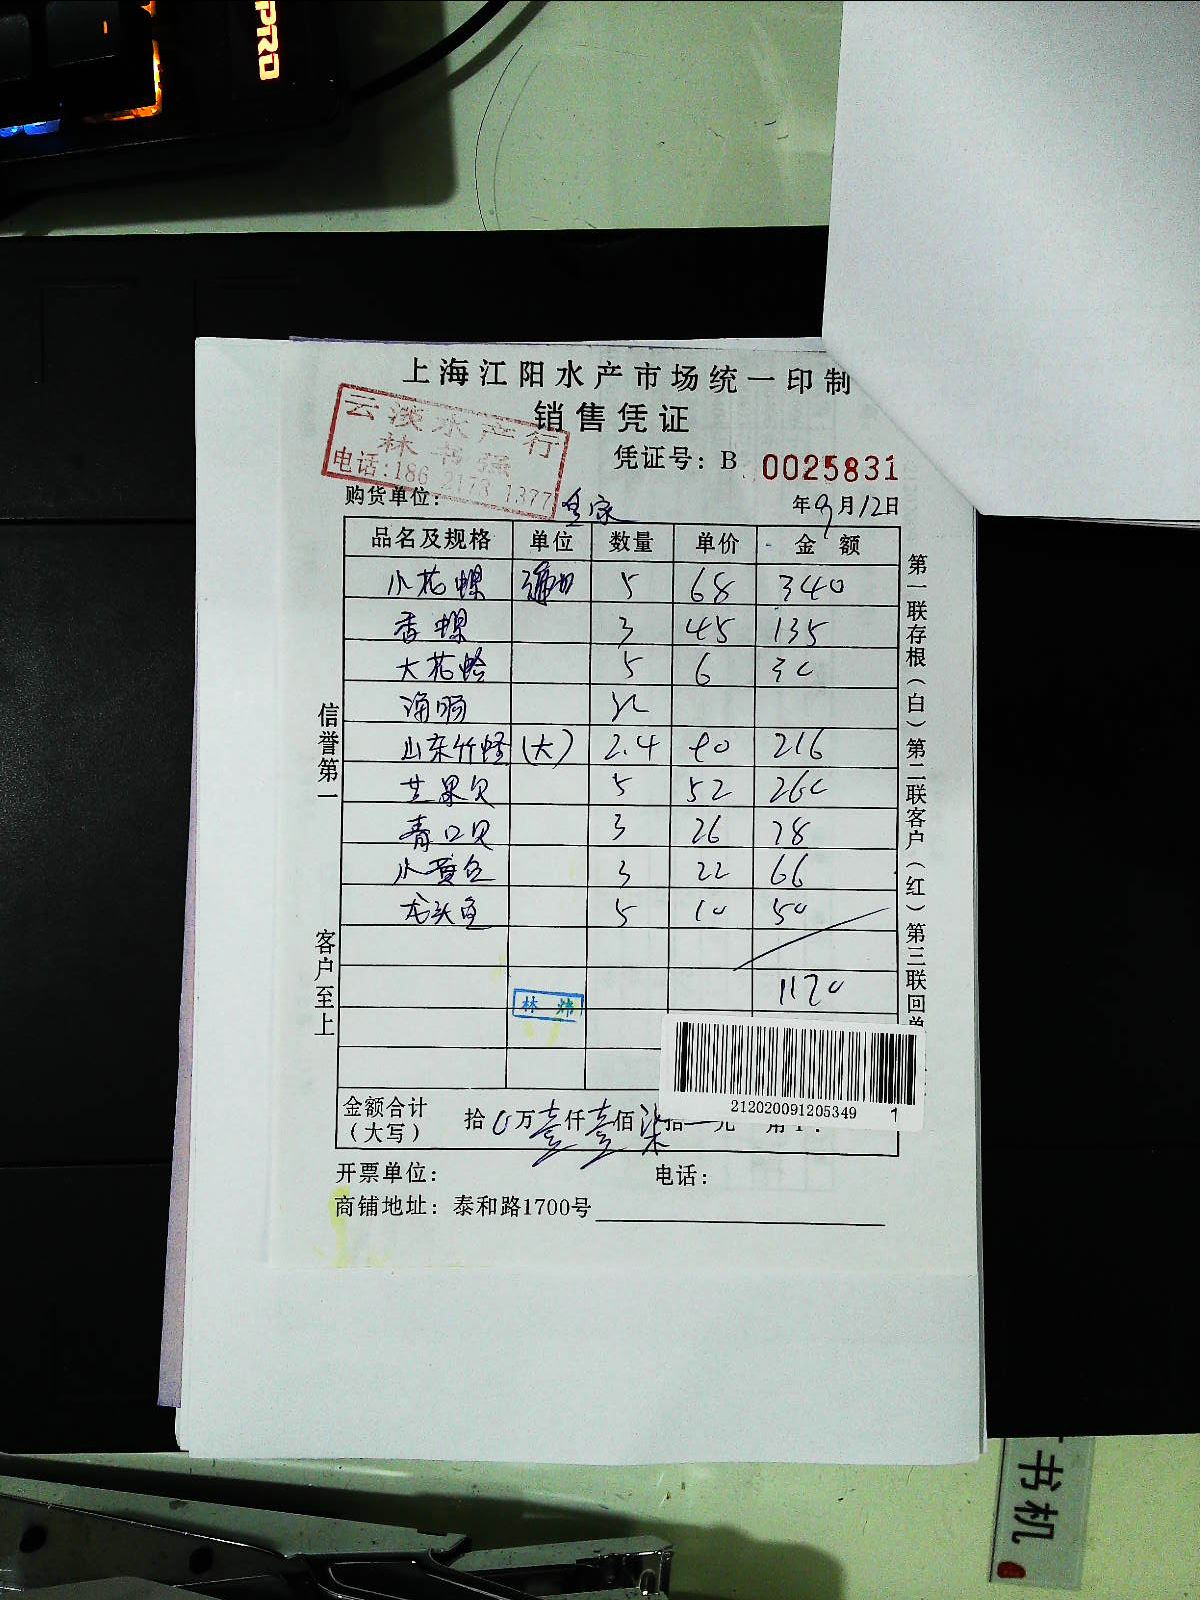 PRO
上海江阳水产市场统一印制
销售凭证
云淡水产行
林书强
电话:186 2173 1377
凭证号: B 0025831
购货单位: 年9月12日
品名及规格 单位 数量 单价 金额
小花螺 5 68 340
香螺 3 45 135
大花蛤 5 6 30
山东竹蛏 (大) 2.4 90 216
芒果贝 5 52 260
青口贝 3 26 78
小黄鱼 3 22 66
龙头鱼 5 10 50
1170
林炜
金额合计(大写) 拾 0 万 壹 仟 壹 佰 柒 拾 元 角
212020091205349 1
开票单位: 电话:
商铺地址: 泰和路1700号
信誉第一
客户至上
第一联存根(白)第二联客户(红)第三联回单
书机